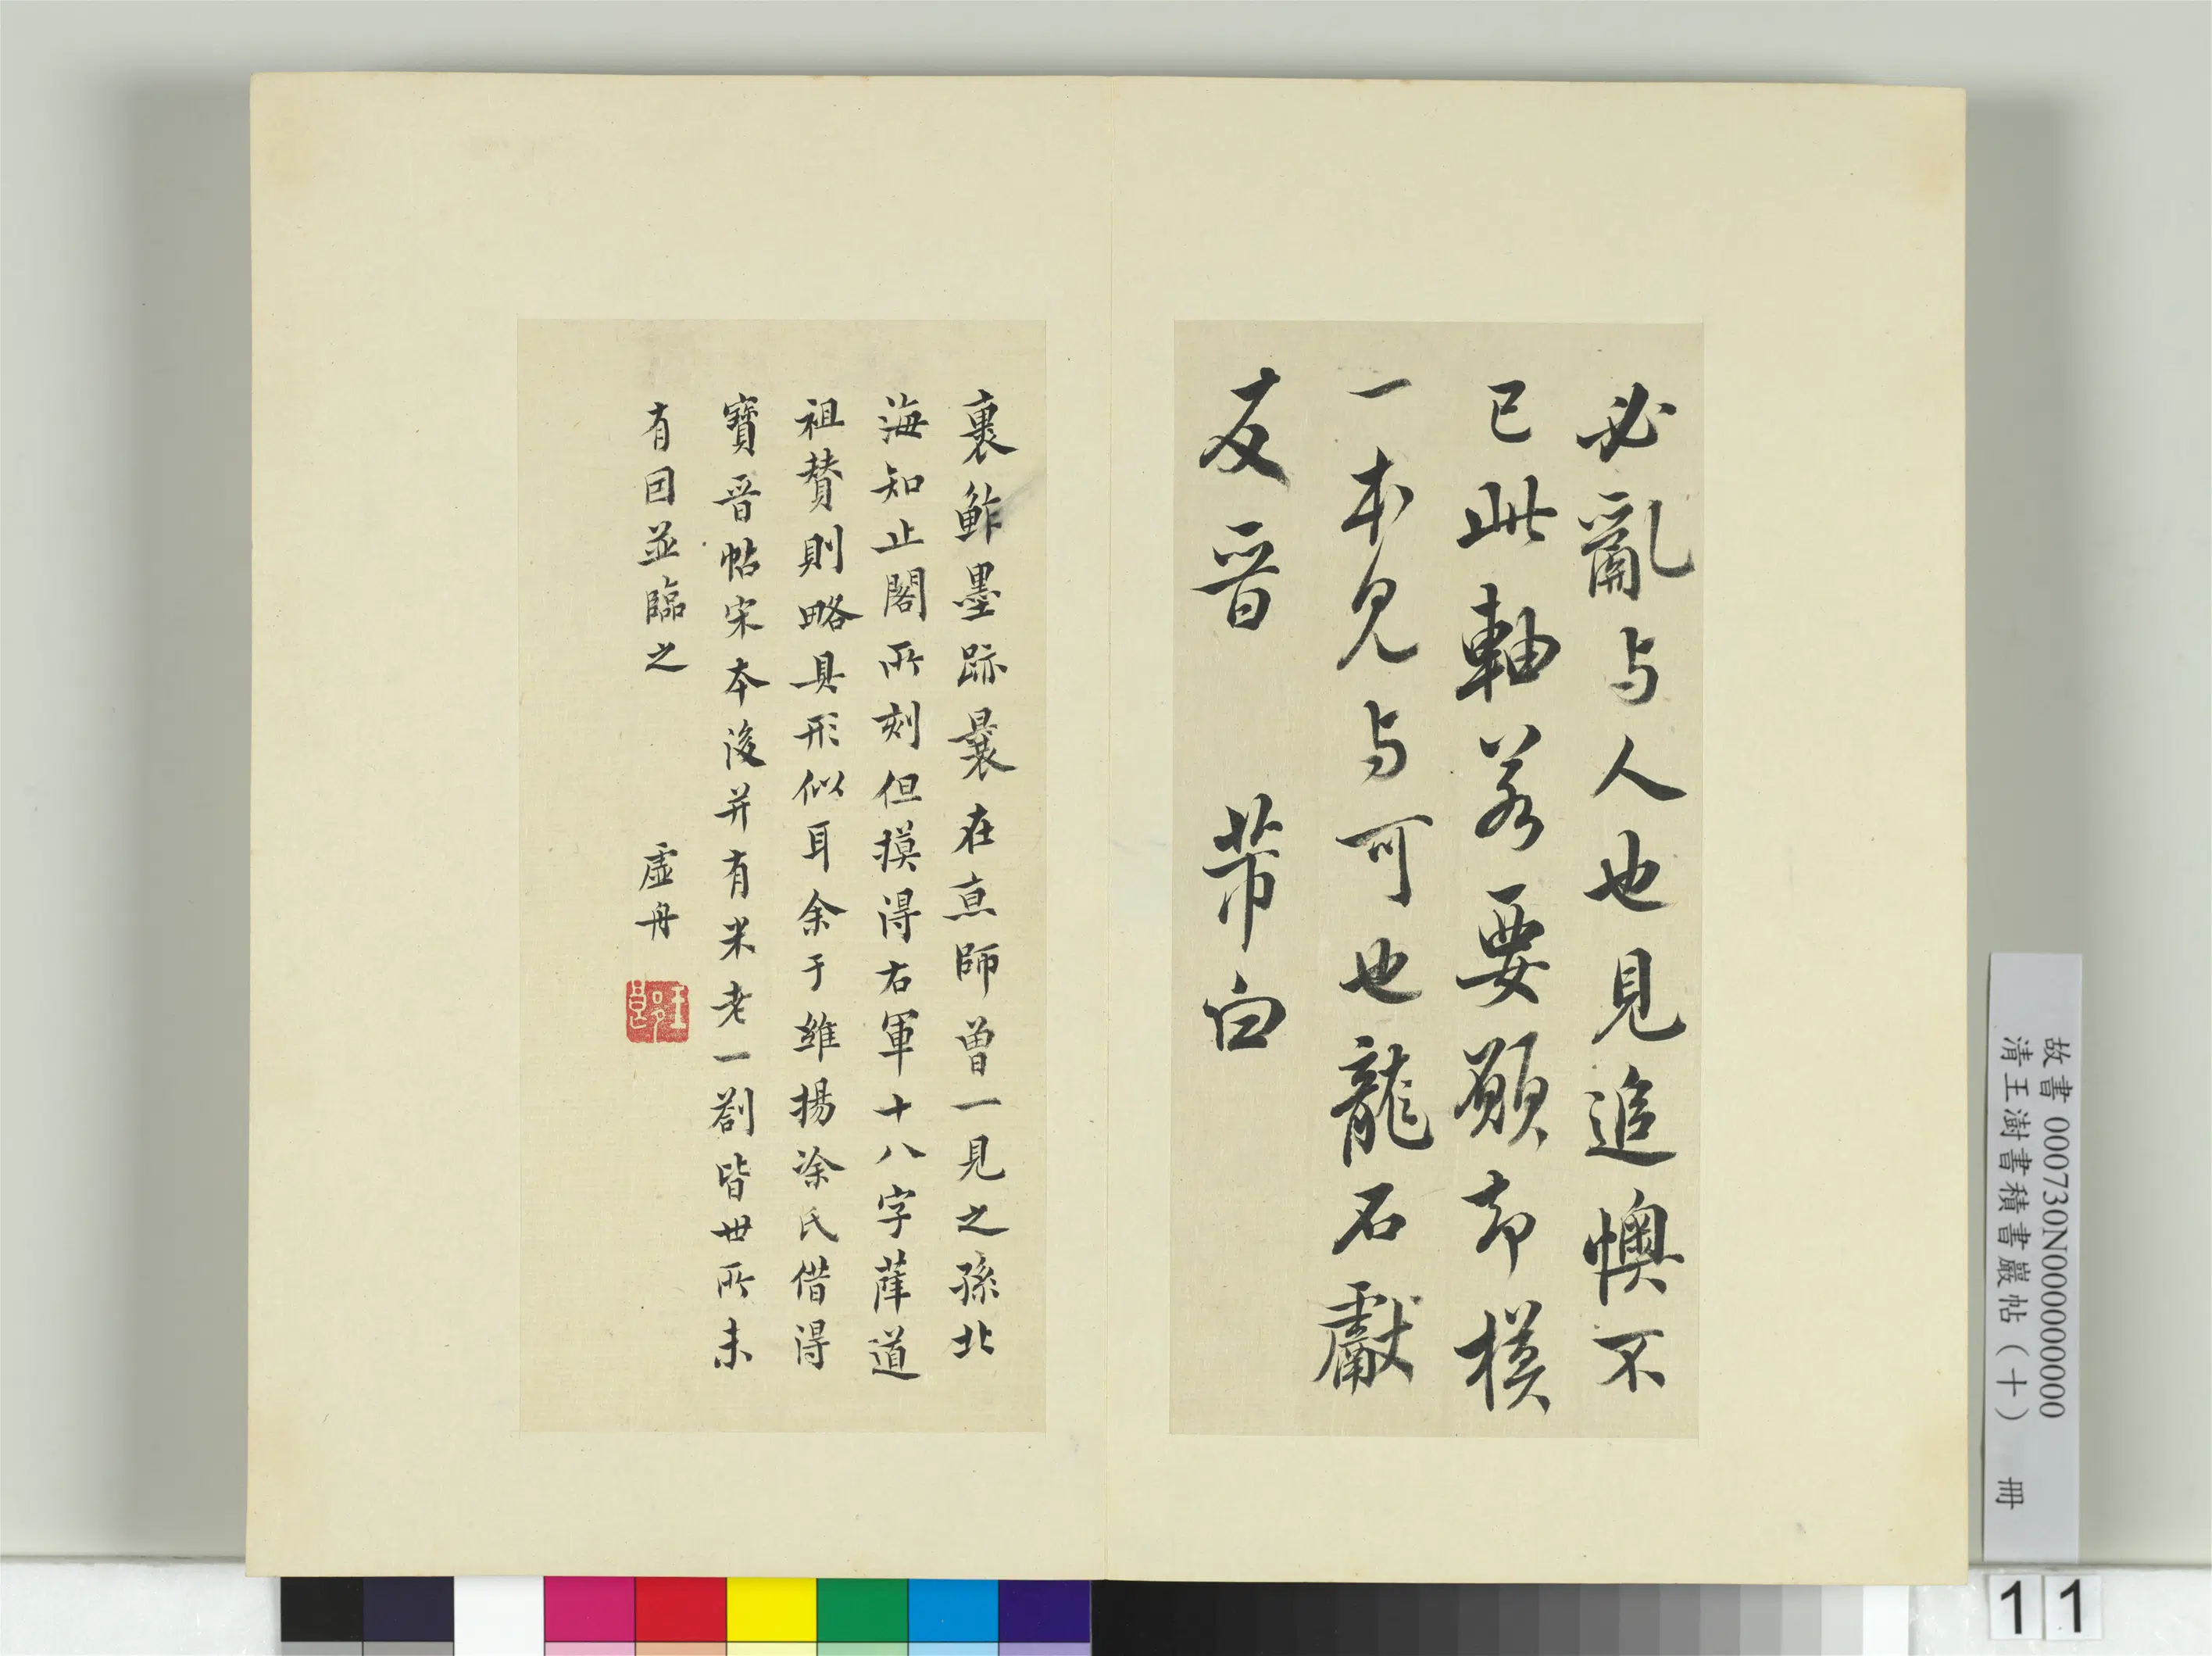 必亂与人也見追懊不
已此軸若要願却模
一本見与可也龍石獻
友晉 芾白
裹鮓墨跡曩在京師曾一見之孫北
海知止閣所刻但摸得右軍十八字薛道
祖贊則略具形似耳余于維揚涂氏借得
寶晉帖宋本後并有米老一劄皆世所未
有因並臨之 虛舟
故書 000730N000000000
清王澍書積書巖帖(十) 冊
11